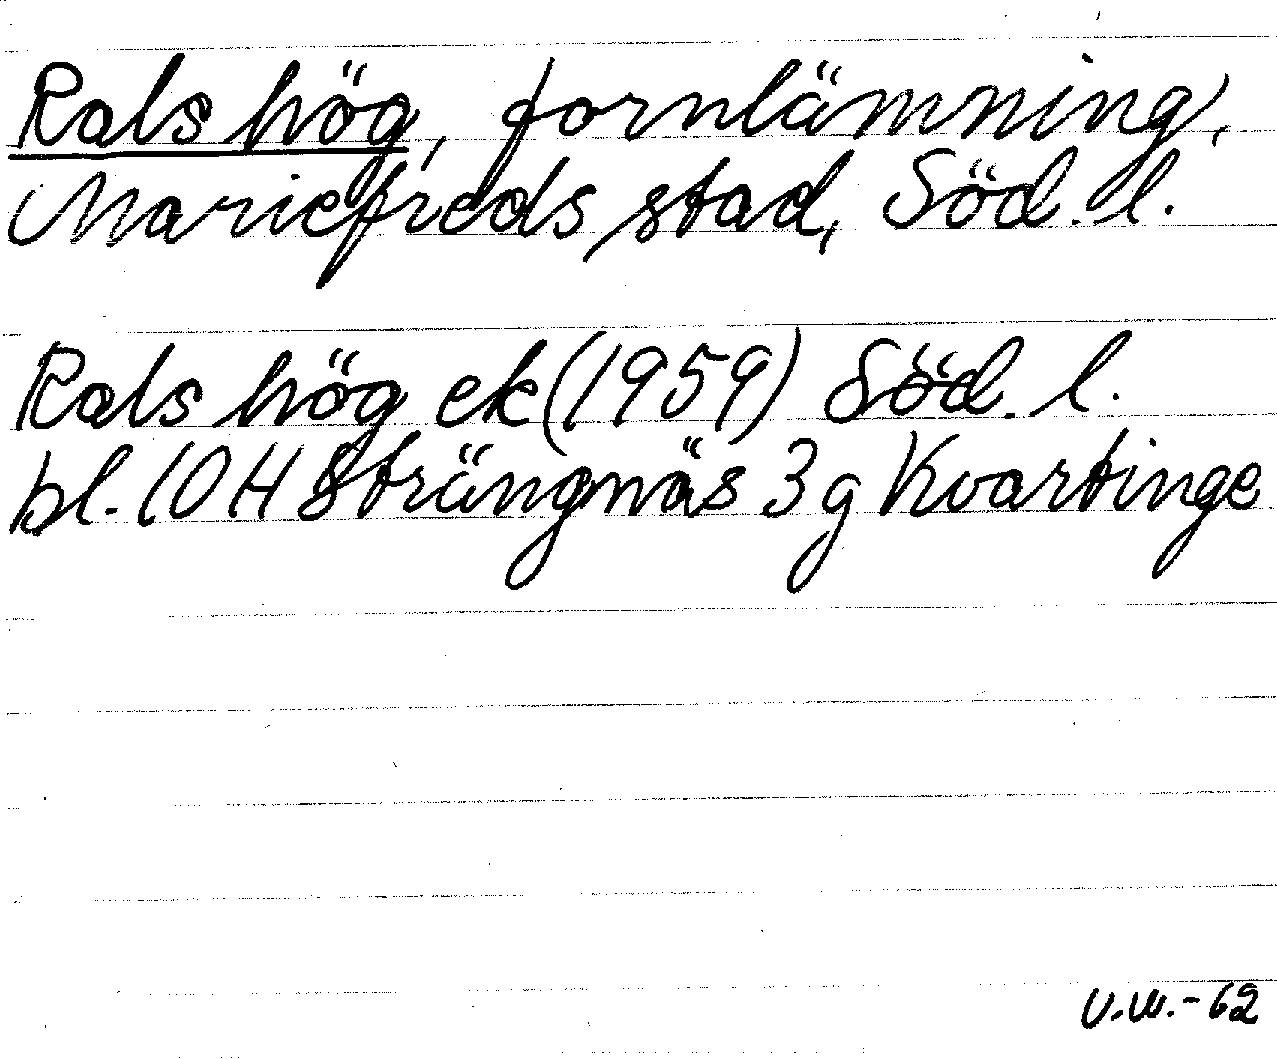 Rals hög, fornlämning,
Mariefreds stad, Söd. l.
Rals hög ek (1959) Söd. l.
bl. 10 H Strängnäs 3 g Kvartinge
U.W.-62